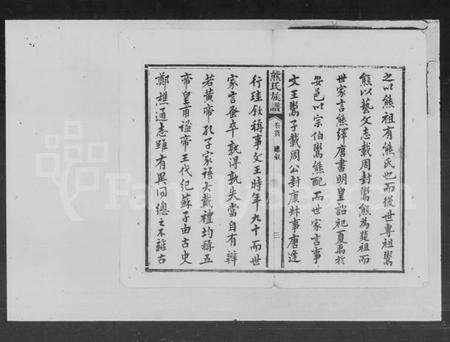 之以熊祖有熊氏也而後世專祖鬻
熊以藝文志載周封鬻熊為楚祖而
世家言熊繹唐書明皇詔祀夏禹於
安邑以宗伯鬻熊配而世家言事
文王鬻子載周公封康叔事唐逢
熊氏族譜 卷首 總叙 三
行珪叙稱事文王時年九十而世
家言蚤卒孰得孰失當自有辯
若黃帝孔子家語大戴禮均稱五
帝皇甫謐帝王代紀蘇子由古史
鄭樵通志雖有異同總之不離古
FamilySearch